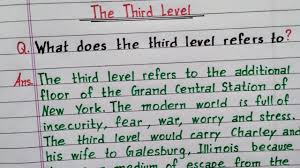 The Third Level
Q. What does the third level refers to?
Ans. The third level refers to the additional
floor of the Grand Central Station of
New York. The modern world is full of
insecurity, fear, war, worry and stress.
The third level would carry Charley and
his wife to Galesburg, Illinois because
medium of escape from the